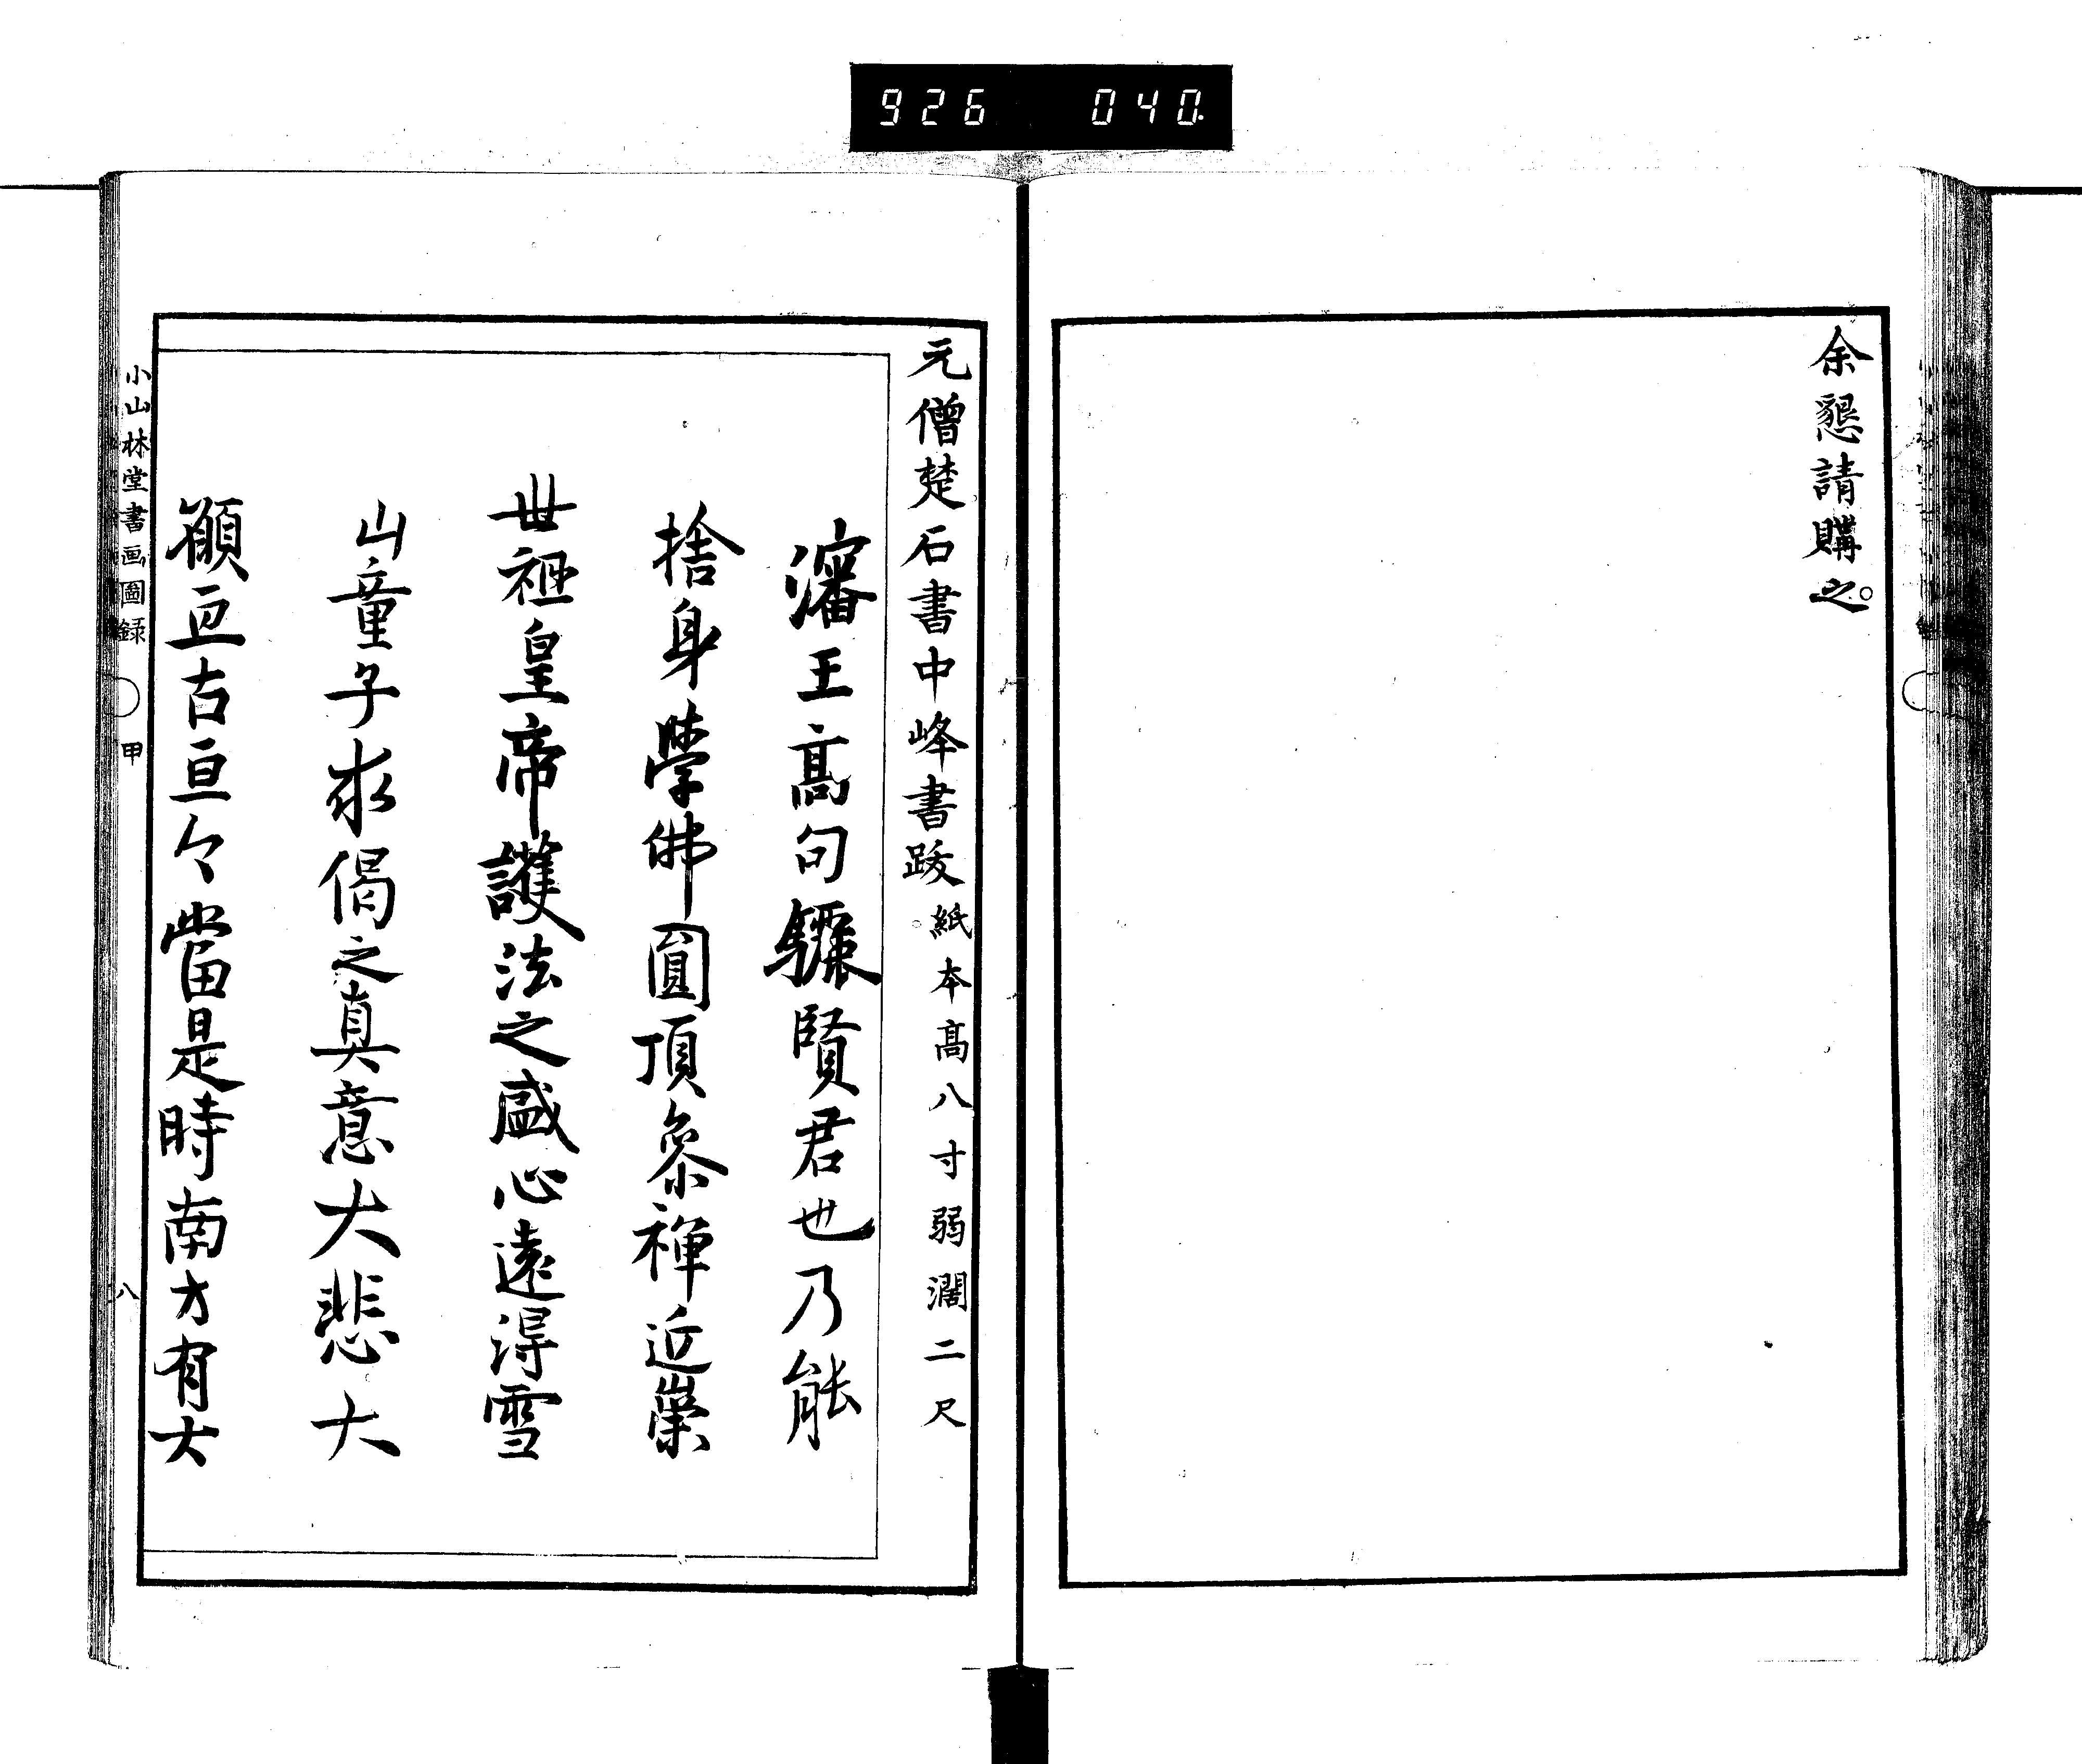 926 040
余懇請購之。
元僧楚石書中峰書跋。紙本高八寸弱濶二尺
瀋王高句驪賢君也乃能
捨身學佛圓頂叅禅近崇
世祖皇帝護法之盛心遠得雪
山童子求偈之真意大悲大
願亘古亘々當是時南方有大
小山林堂書画圖録 甲 八